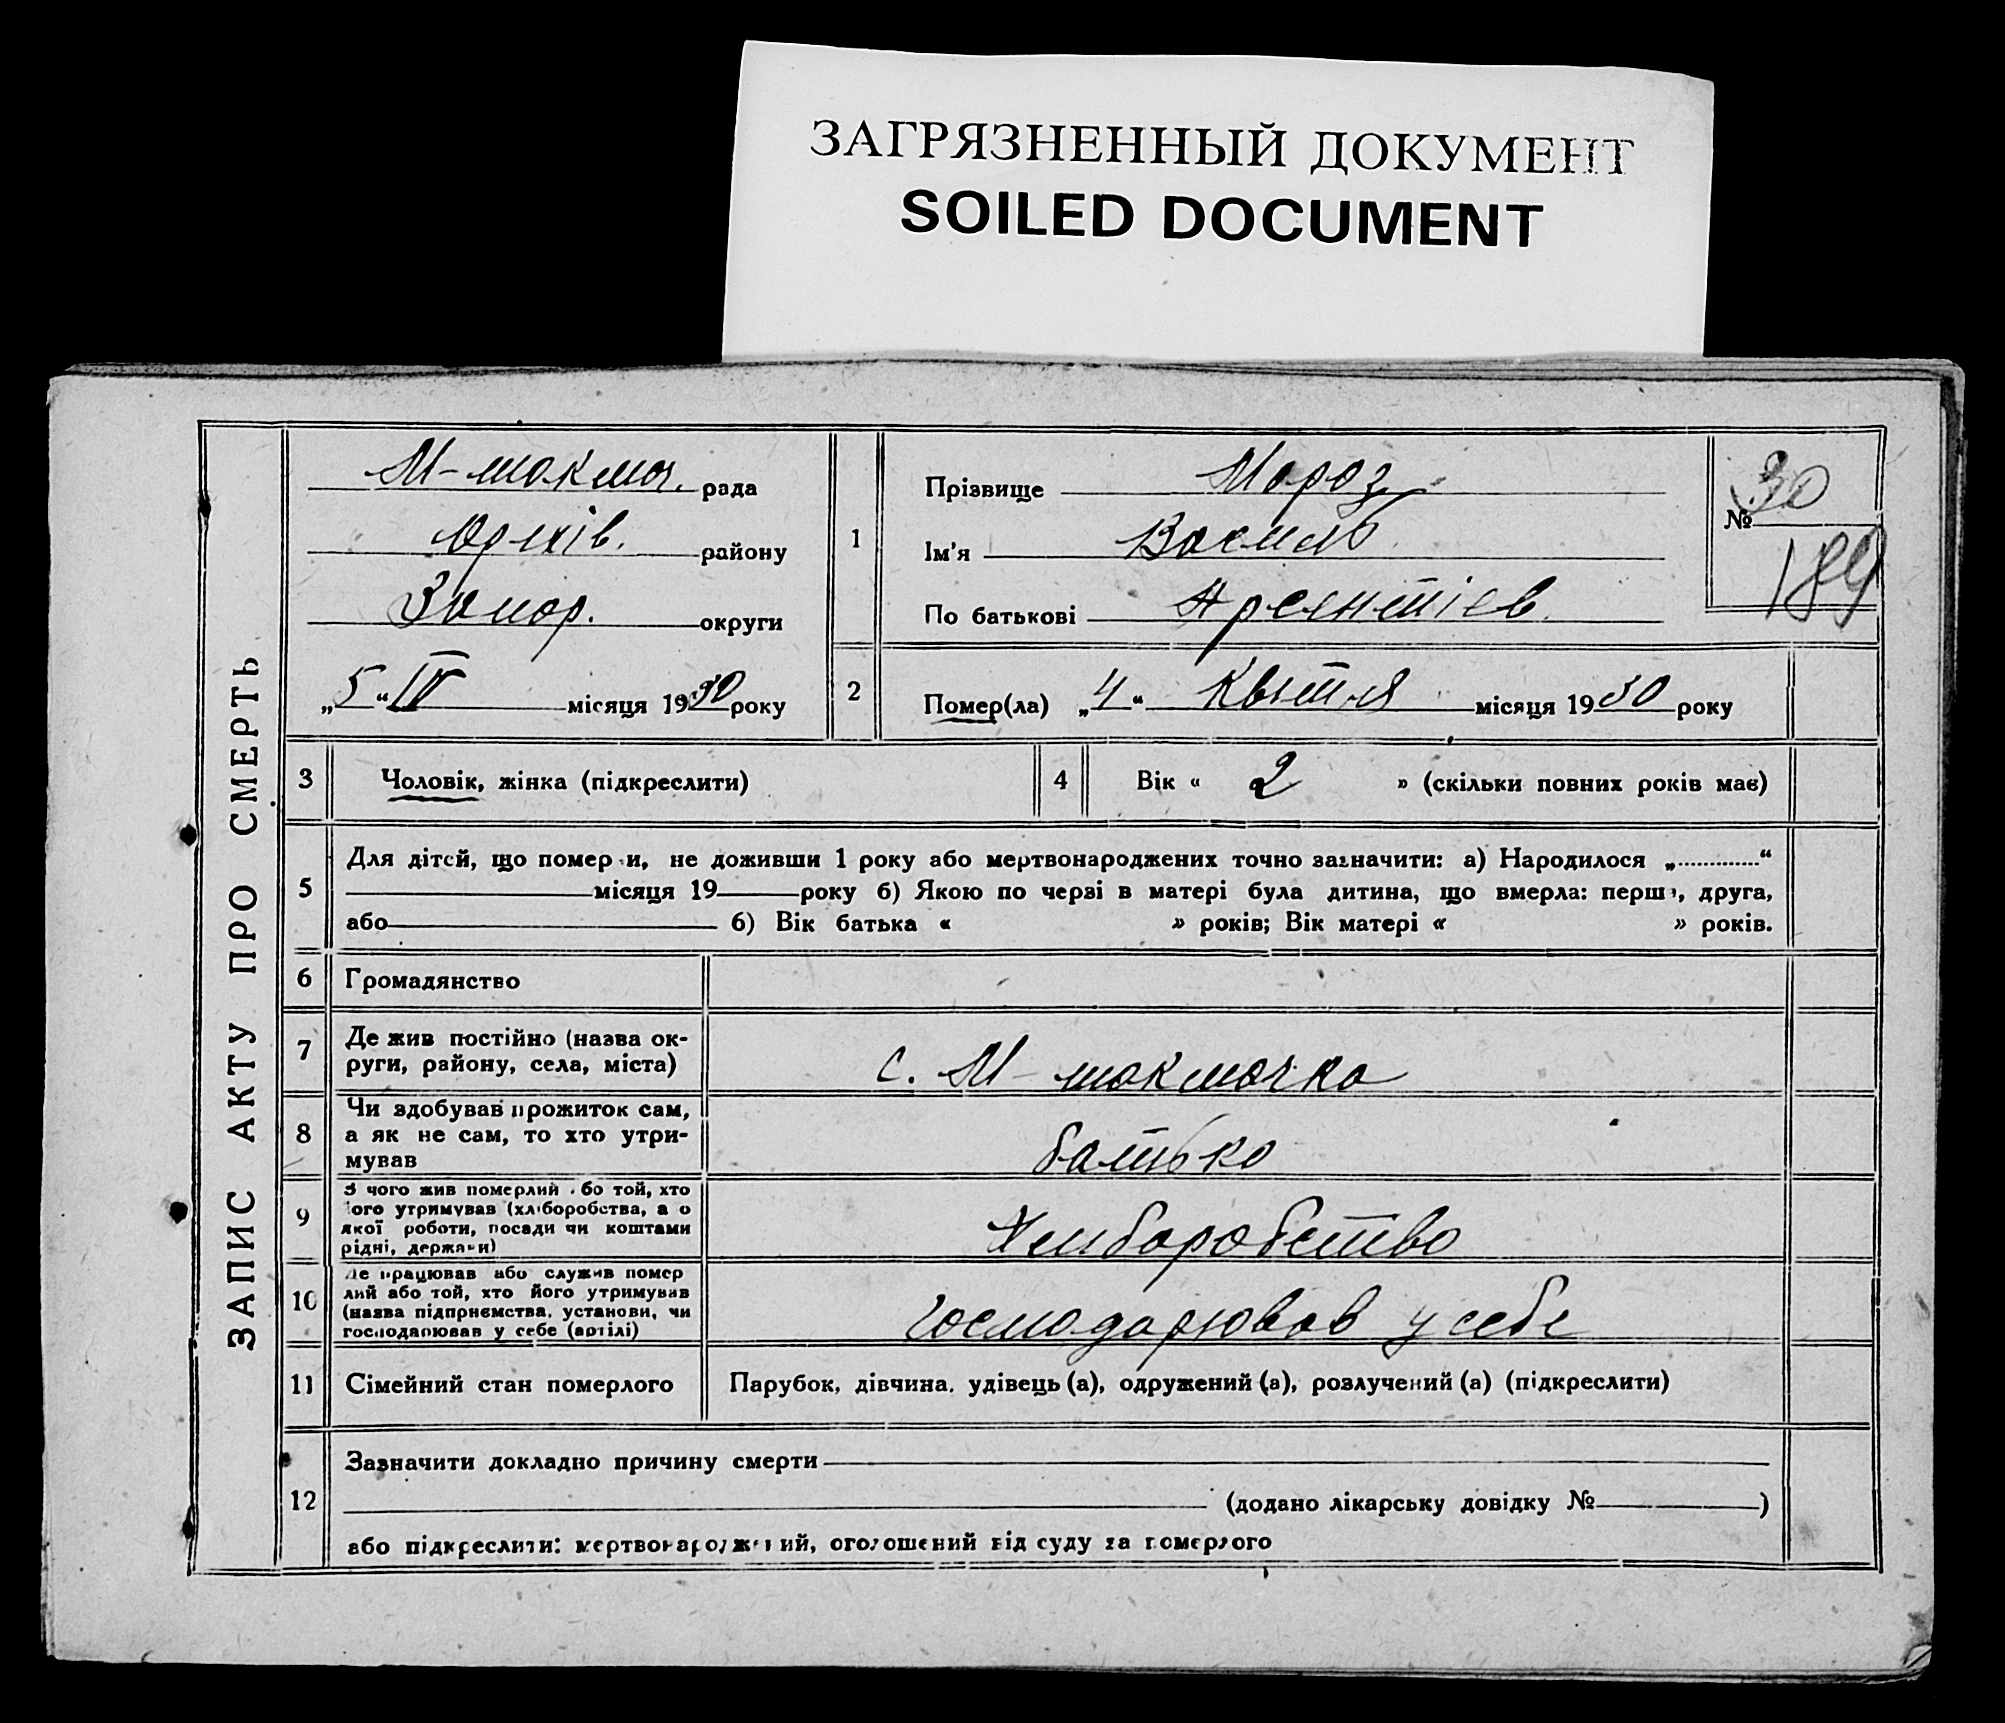 ЗАГРЯЗНЕННЫЙ ДОКУМЕНТ
SOILED DOCUMENT
ЗАПИС АКТУ ПРО СМЕРТЬ
М-токмач. рада
Оріхів. району
Запор. округи
„5“ IV місяця 1930 року
1
Прізвище Мороз
Ім'я Василь
По батькові Арсентіев.
№ 30
189
2
Помер(ла) „4“ Квітня місяця 1930 року
3 Чоловік, жінка (підкреслити)
4 Вік « 2 » (скільки повних років має)
5
Для дітей, що померли, не доживши 1 року або мертвонароджених точно зазначити: а) Народилося „............“
місяця 19 року б) Якою по черзі в матері була дитина, що вмерла: перша, друга,
або б) Вік батька « » років; Вік матері « » років.
6 Громадянство
7 Де жив постійно (назва ок-
руги, району, села, міста)
с. М-токмачка
8 Чи здобував прожиток сам,
а як не сам, то хто утри-
мував
батько
9 З чого жив померлий або той, хто
його утримував (хліборобства, або
якої роботи, посади чи коштами
рідні, держави)
Хліборобство
10 Де працював або служив помер
лий або той, хто його утримував
(назва підприємства, установи, чи
господарював у себе (артілі)
господарював у себе
11 Сімейний стан померлого
Парубок, дівчина, удівець (а), одружений (а), розлучений (а) (підкреслити)
12
Зазначити докладно причину смерти
(додано лікарську довідку № )
або підкреслити: мертвонароджений, оголошений від суду за померлого